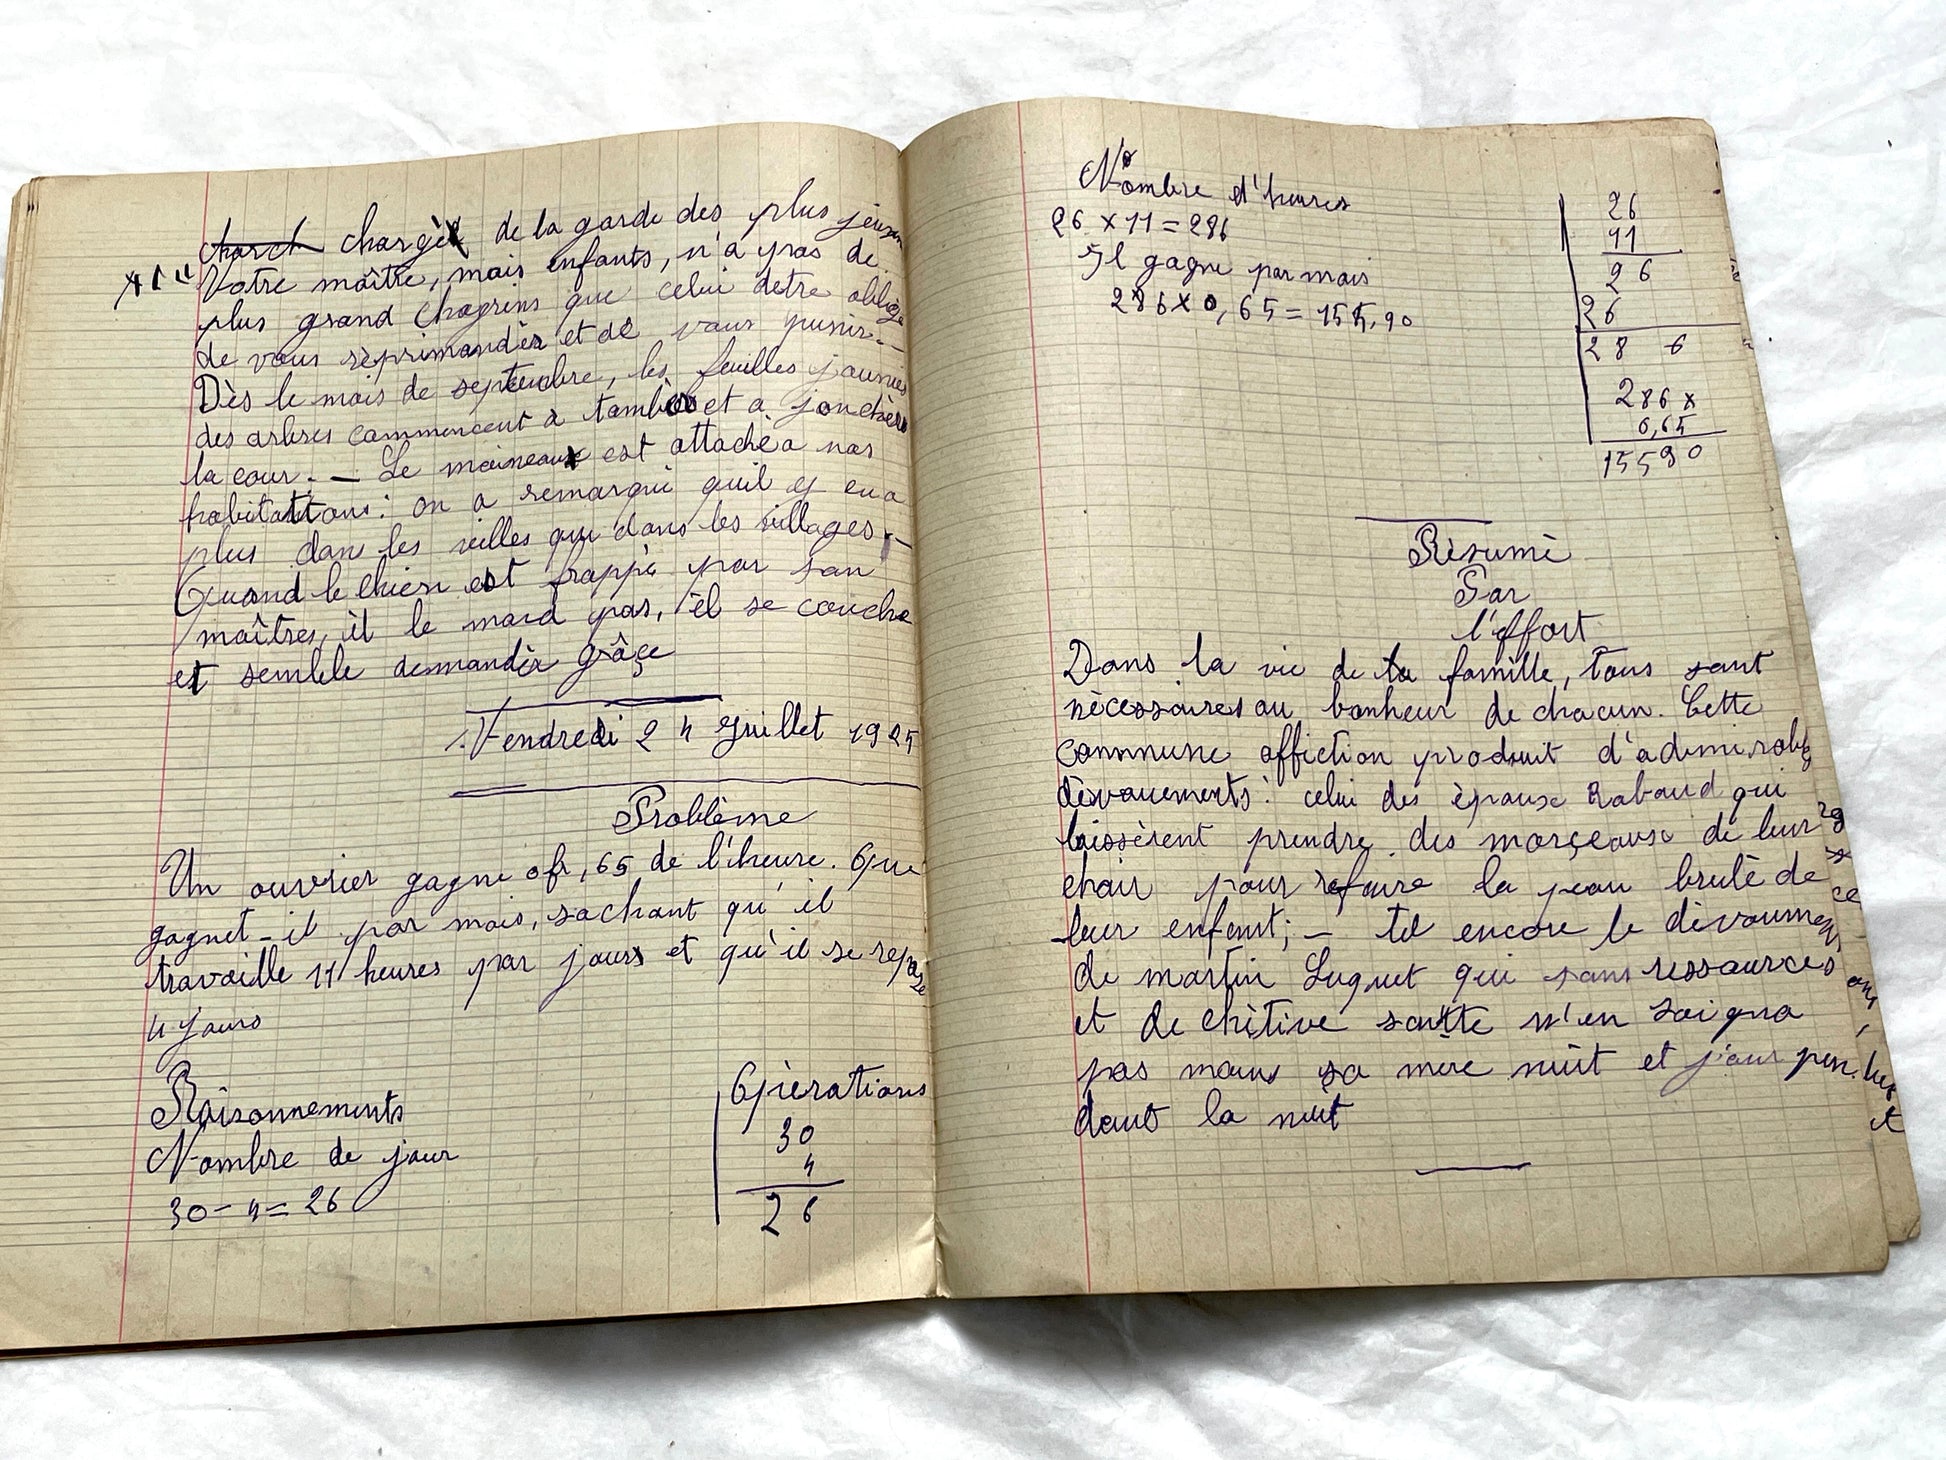 chargé de la garde des plus jeunes
Votre maître, mais enfants, n'a pas de
plus grand chagrins que celui detre obligé
de vous réprimandér et de vous punir. -
Dès le mois de septembre, les feuilles jaunies
des arbres commencent à tomber et a jonchér
la cour. - Le moineaux est attaché a nos
habitattons : on a remarqué quil y en a
plus dans les villes que dans les villages. -
Quand le chien est frappé par son
maîtres, il le mord pas, il se couche
et semble demandér grâçe
Vendredi 24 Juillet 1925
Problème
Un ouvrier gagne 0fr,65 de l'heure. Que
gagnet-il par mois, sachant qu'il
travaille 11 heures par jours et qu'il se repose
4 jours
Raisonnements
Opèrations
Nombre de jour
30
4
30 - 4 = 26
26
Nombre d'heures
26 x 11 = 286
Il gagne par mois
286 x 0,65 = 155,90
26
11
26
26
286
286 x
0,65
15590
Rèsumè
Par
l'effort
Dans la vie de ta famille, tous sont
nècessaires au bonheur de chacun. Cette
commune affiction produit d'admirable
dèvouements : celui des èpoux Rabaud qui
laissèrent prendre des morçeaux de leur
chair pour refaire la peau brulè de
leur enfant; - tel encore le dèvoument
de martin Luquet qui sans ressources
et de chètive santte n'en soigna
pas mons sa mere nuit et jour pen
dant la nuit